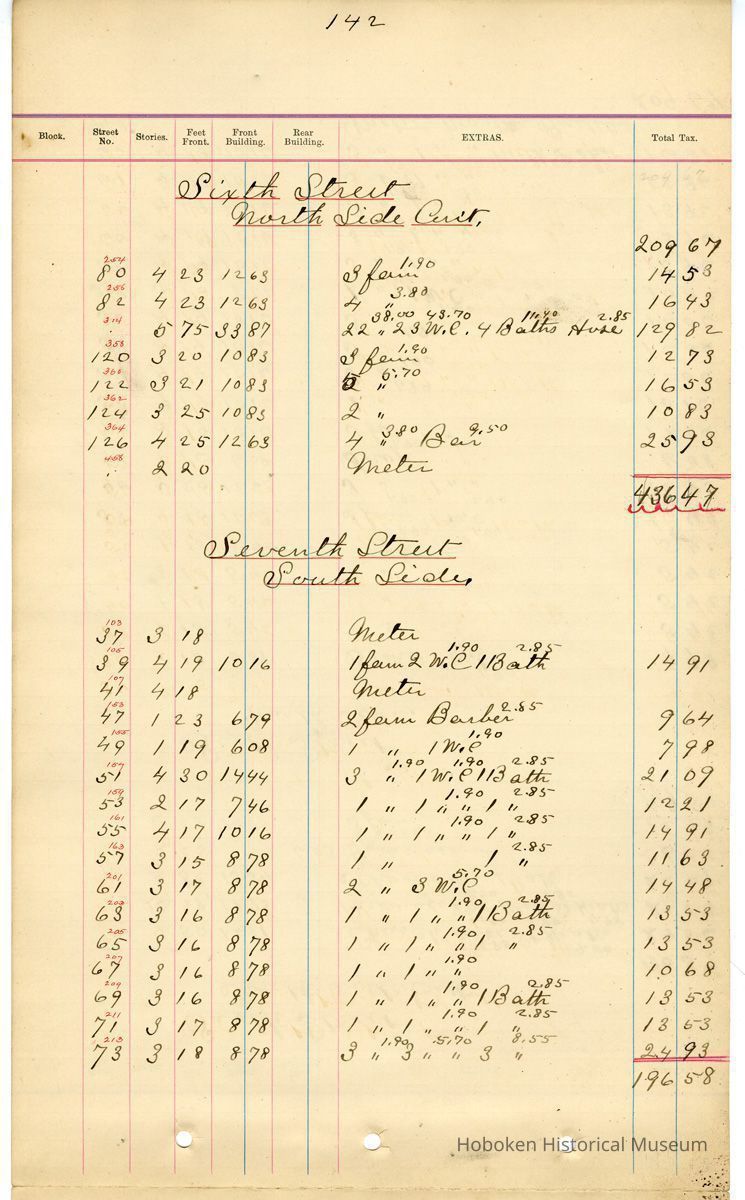 142
Block. Street No. Stories. Feet Front. Front Building. Rear Building. EXTRAS. Total Tax.
Sixth Street
North Side Cont.
209 67
254
80 4 23 12 63 3 fam 1.90 14 53
256
82 4 23 12 63 4 " 3.80 16 43
314
. 5 75 33 87 22 " 38.00 23 W.C. 43.70 4 Baths 11.40 Hose 2.85 129 82
358
120 3 20 10 83 3 fam 1.90 12 73
360
122 3 21 10 83 5 " 5.70 16 53
362
124 3 25 10 83 2 " 10 83
364
126 4 25 12 63 4 " 3.80 Bar 9.50 25 93
458
. 2 20 Meter
436 47
Seventh Street
South Side.
103
37 3 18 Meter
105
39 4 19 10 16 1 fam 2 W.C 1.90 1 Bath 2.85 14 91
107
41 4 18 Meter
153
47 1 23 6 79 2 fam Barber 2.85 9 64
155
49 1 19 6 08 1 " 1 W.C 1.90 7 98
157
51 4 30 14 44 3 " 1.90 1 W.C 1.90 1 Bath 2.85 21 09
159
53 2 17 7 46 1 " 1 " 1.90 1 " 2.85 12 21
161
55 4 17 10 16 1 " 1 " 1.90 1 " 2.85 14 91
163
57 3 15 8 78 1 " 1 " 2.85 11 63
201
61 3 17 8 78 2 " 3 W.C 5.70 14 48
203
63 3 16 8 78 1 " 1 " 1.90 1 Bath 2.85 13 53
205
65 3 16 8 78 1 " 1 " 1.90 1 " 2.85 13 53
207
67 3 16 8 78 1 " 1 " 1.90 10 68
209
69 3 16 8 78 1 " 1 " 1.90 1 Bath 2.85 13 53
211
71 3 17 8 78 1 " 1 " 1.90 1 " 2.85 13 53
213
73 3 18 8 78 3 " 1.90 3 " 5.70 3 " 8.55 24 93
196 58
Hoboken Historical Museum